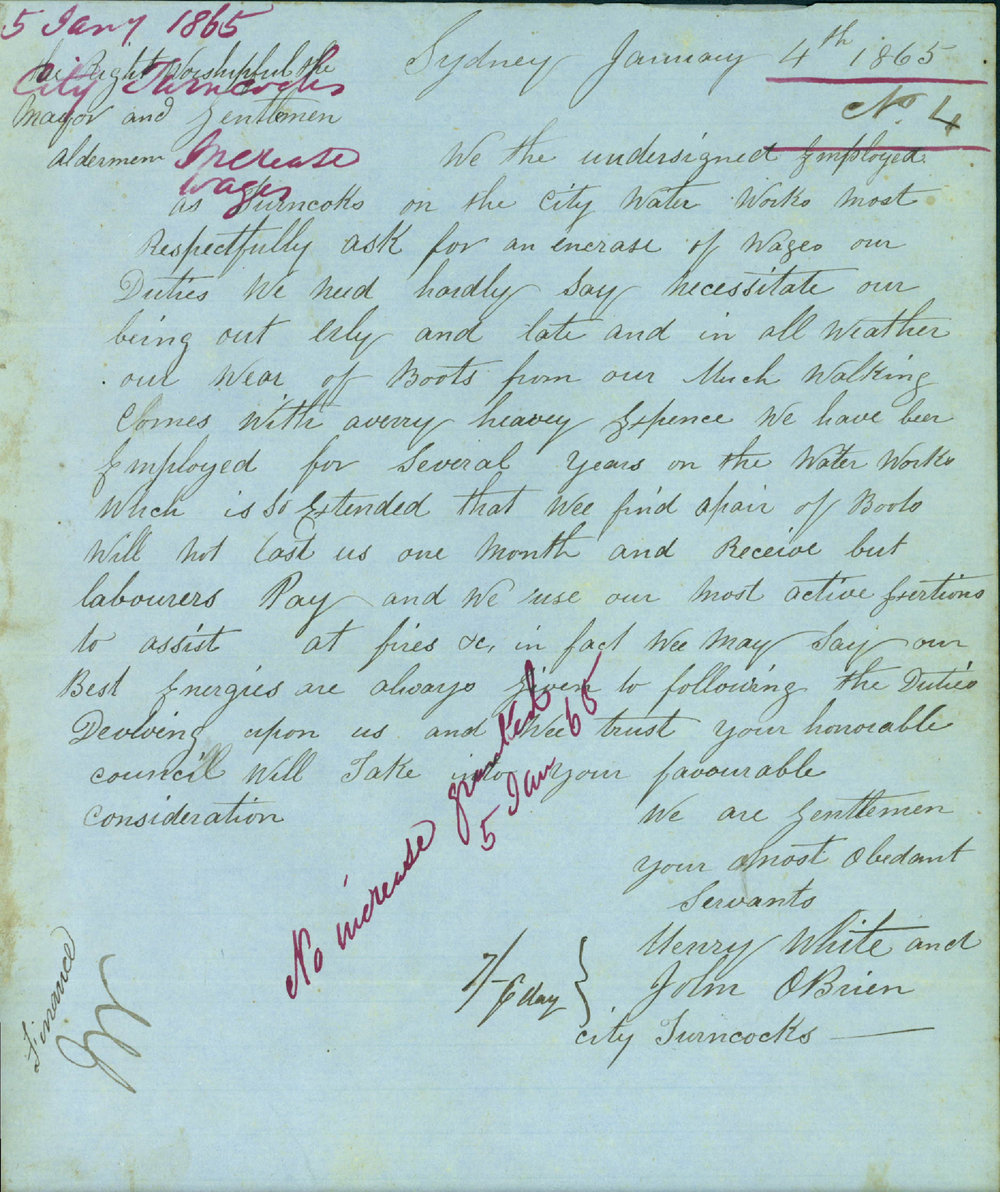 5 Jany 1865
City Turncocks
Increase
wages
Sydney January 4th 1865
No 4
The Right Worshipful the
Mayor and Gentlemen
aldermen We the undersigned Employed
as Turncoks on the City Water Works most
Respectfully ask for an encrase of Wages our
Duties We need hardly Say necessitate our
being out Erly and late and in all Weather
our Wear of Boots from our Much Walking
Comes With averry heavey Expence We have been
Employed for Several Years on the Water Works
Which is so Extended that Wee find apair of Boots
Will not Last us one Month and Receive but
labourers Pay and We use our most active Exertions
to assist at fires &c, in fact Wee May Say our
Best Energies are always given to following the Duties
Devolving upon us and Wee trust your honorable
council Will Take into your favourable
Consideration
We are Gentlemen
your most Obedant
Servants
Henry White and
John OBrien
City Turncocks
7/- day
No increase granted
5 Jan 65
Finance